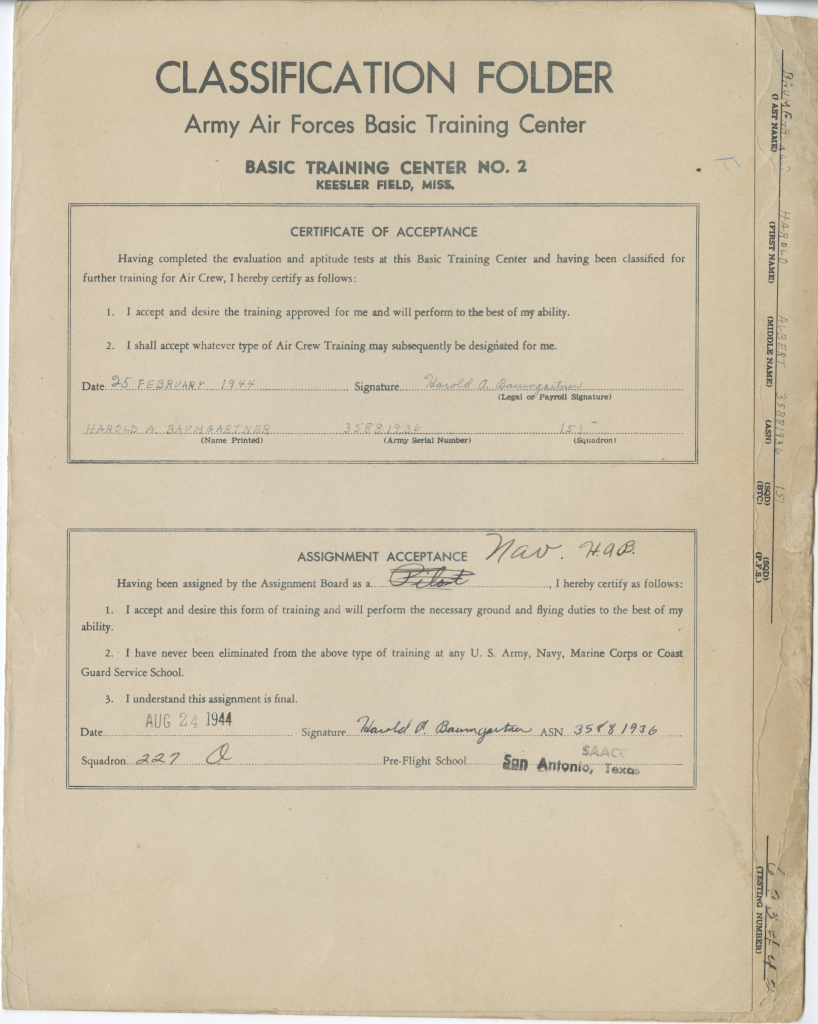 CLASSIFICATION FOLDER
Army Air Forces Basic Training Center
BASIC TRAINING CENTER NO. 2
KEESLER FIELD, MISS.
CERTIFICATE OF ACCEPTANCE
Having completed the evaluation and aptitude tests at this Basic Training Center and having been classified for
further training for Air Crew, I hereby certify as follows:
1. I accept and desire the training approved for me and will perform to the best of my ability.
2. I shall accept whatever type of Air Crew Training may subsequently be designated for me.
Date 25 FEBRUARY 1944 Signature Harold A. Baumgartner
(Legal or Payroll Signature)
HAROLD A BAUMGARTNER 35881936 151
(Name Printed) (Army Serial Number) (Squadron)
Nav. H.A.B.
ASSIGNMENT ACCEPTANCE
Having been assigned by the Assignment Board as a Pilot, I hereby certify as follows:
1. I accept and desire this form of training and will perform the necessary ground and flying duties to the best of my
ability.
2. I have never been eliminated from the above type of training at any U. S. Army, Navy, Marine Corps or Coast
Guard Service School.
3. I understand this assignment is final.
Date AUG 24 1944 Signature Harold A. Baumgartner ASN 35881936
SAACC
Squadron 227 O Pre-Flight School San Antonio, Texas
BAUMGARTNER HAROLD ALBERT 35881936 151
(LAST NAME) (FIRST NAME) (MIDDLE NAME) (ASN) (SQD) (BTC) (SQD) (P.F.S.)
(TESTING NUMBER)